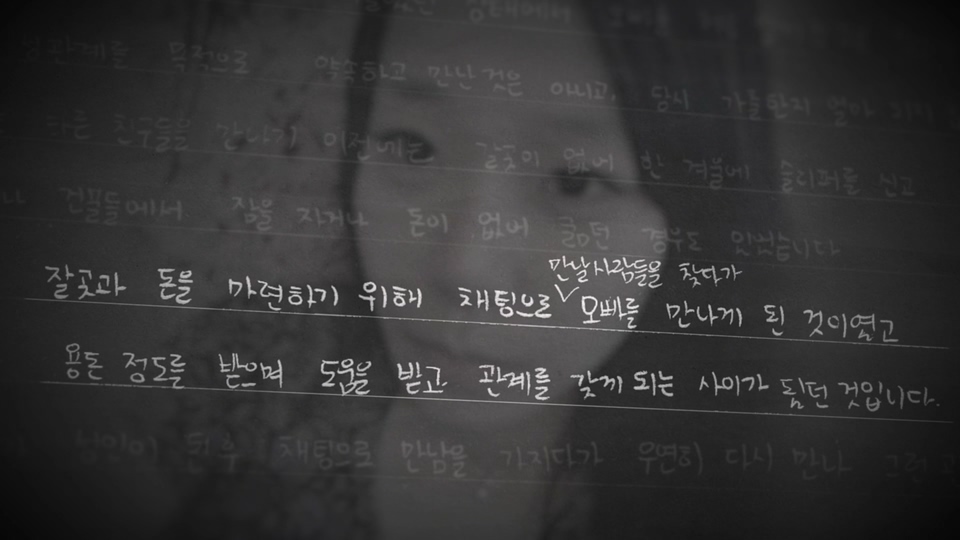 성관계를 목적으로 약속하고 만난 것은 아니고, 당시 가출한지 얼마
다른 친구들을 만나기 이전에는 갈곳이 없어 한 겨울에 슬리퍼를 신고
건물들에서 잠을 자거나 돈이 없어 굶던 경우도 있었습니다
만날 사람들을 찾다가
잘곳과 돈을 마련하기 위해 채팅으로 오빠를 만나게 된 것이였고
용돈 정도를 받으며 도움을 받고 관계를 갖게 되는 사이가 됬던 것입니다.
성인이 된 후 채팅으로 만남을 가지다가 우연히 다시 만나 그런